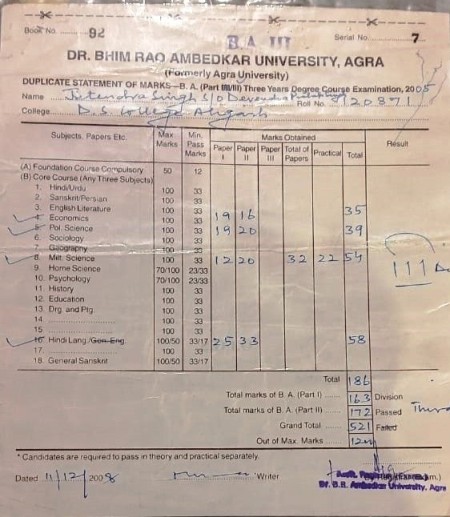 Book No. 92
B.A III
Serial No. 7
DR. BHIM RAO AMBEDKAR UNIVERSITY, AGRA
(Formerly Agra University)
DUPLICATE STATEMENT OF MARKS—B. A. (Part I/II/III) Three Years Degree Course Examination, 2005
Name Jitendra Singh S/o Devendra Roll No. 8120871
College D.S. College Aligarh
Subjects, Papers Etc. Max Marks Min. Pass Marks Marks Obtained Result
Paper I Paper II Paper III Total of Papers Practical Total
(A) Foundation Course Compulsory 50 12
(B) Core Course (Any Three Subjects)
1. Hindi/Urdu 100 33
2. Sanskrit/Persian 100 33
3. English Literature 100 33
4. Economics 100 33 19 16 35
5. Pol. Science 100 33 19 20 39
6. Sociology 100 33
7. Geography 100 33
8. Milt. Science 100 33 12 20 32 22 54
9. Home Science 70/100 23/33
10. Psychology 70/100 23/33
11. History 100 33
12. Education 100 33
13. Drg. and Ptg. 100 33
14. 100 33
15. 100 33
16. Hindi Lang./Gen. Eng. 100/50 33/17 25 33 58
17. 100 33
18. General Sanskrit 100/50 33/17
III
Total 186
Total marks of B. A. (Part I) 163 Division
Total marks of B. A. (Part II) 172 Passed
Grand Total 521 Failed
Out of Max. Marks
* Candidates are required to pass in theory and practical separately.
Dated 11/12/2008 Writer
Dr. B.R. Ambedkar University, Agra